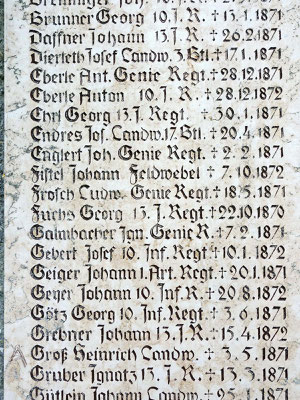 Brunner Georg 10. J. R. † 13. 1. 1871
Daffner Johann 13. J. R. † 26. 2. 1871
Dierleth Josef Landw. 3. Btl. † 17. 1. 1871
Eberle Ant. Genie Regt. † 28. 12. 1871
Eberle Anton 10. J. R. † 28. 12. 1872
Ehrl Georg 13. J. Regt. † 30. 1. 1871
Endres Jos. Landw. 17. Btl. † 20. 4. 1871
Englert Joh. Genie Regt. † 2. 2. 1871
Fistel Johann Feldwebel † 7. 10. 1872
Frosch Ludw. Genie Regt. † 18. 5. 1871
Fuchs Georg 13. J. Regt. † 22. 10. 1870
Galmbacher Jgn. Genie R. † 7. 2. 1871
Gebert Josef 10. Inf. Regt. † 10. 1. 1872
Geiger Johann 1. Art. Regt. † 20. 1. 1871
Geyer Johann 10. Inf. R. † 20. 8. 1872
Götz Georg 10. Inf. Regt. † 3. 6. 1871
Grebner Johann 13. J. R. † 15. 4. 1872
Groß Heinrich Landw. † 3. 5. 1871
Gruber Ignatz 13. J. R. † 13. 3. 1871
Gütlein Johann Landw. † 25. 1. 1871